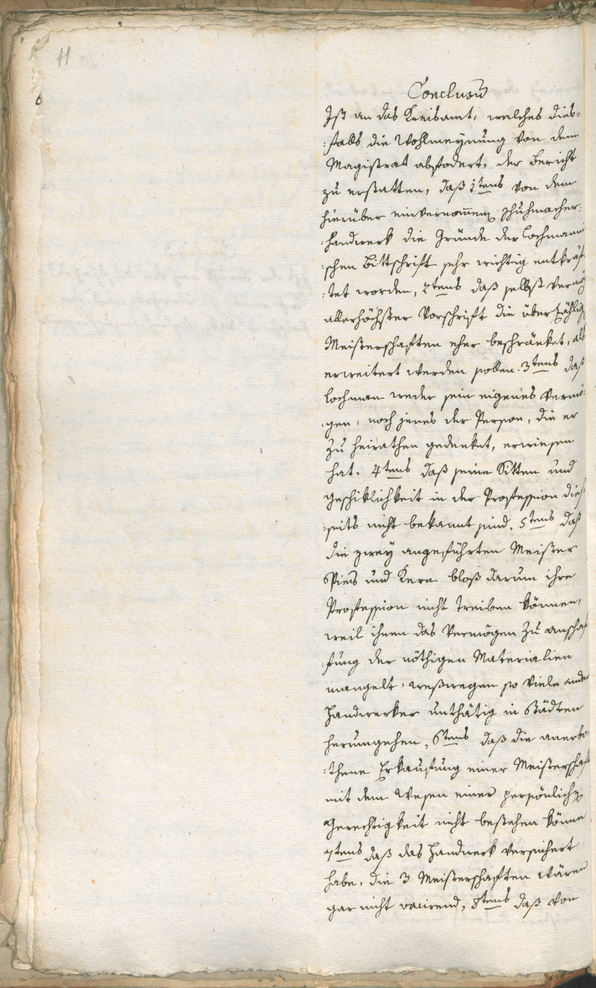 11
Conclusum
Ist an das Kreisamt, welches dies-
falls die Wohlmeynung von dem
Magistrat abfodert, der Bericht
zu erstatten, daß 1tens von dem
hierüber einvernommen Schuhmacher-
handwerk die Gründe der Lochmann
schen Bittschrift sehr wichtig entkräf
tet worden, 2tens daß selbst vermög
allerhöchster Vorschrift die überzählig
Meisterschaften eher beschränket, als
erweitert werden sollen. 3tens daß
Lochman weder sein eigenes Vermö-
gen, noch jenes der Person, die er
zu heirathen gedenket, erwiesen
hat. 4tens daß seine Sitten und
Geschiklichkeit in der Profession dies
seits nicht bekannt sind. 5tens daß
die zwey angeführten Meister
Spies und Kern bloß darum ihre
Profession nicht treiben können,
weil ihnen das Vermögen zu anschaf
fung der nöthigen Materialien
mangelt, weßwegen so viele ande
Handwerker unthätig in Städten
herumgehen, 6tens daß die anerbo
thene Erkaufung einer Meisterschaft
mit dem Wesen einer persönlich
Gerechtigkeit nicht bestehen könne
7tens daß das Handwerk versichert
habe, die 3 Meisterschaften wären
gar nicht vacirend, 8tens daß von